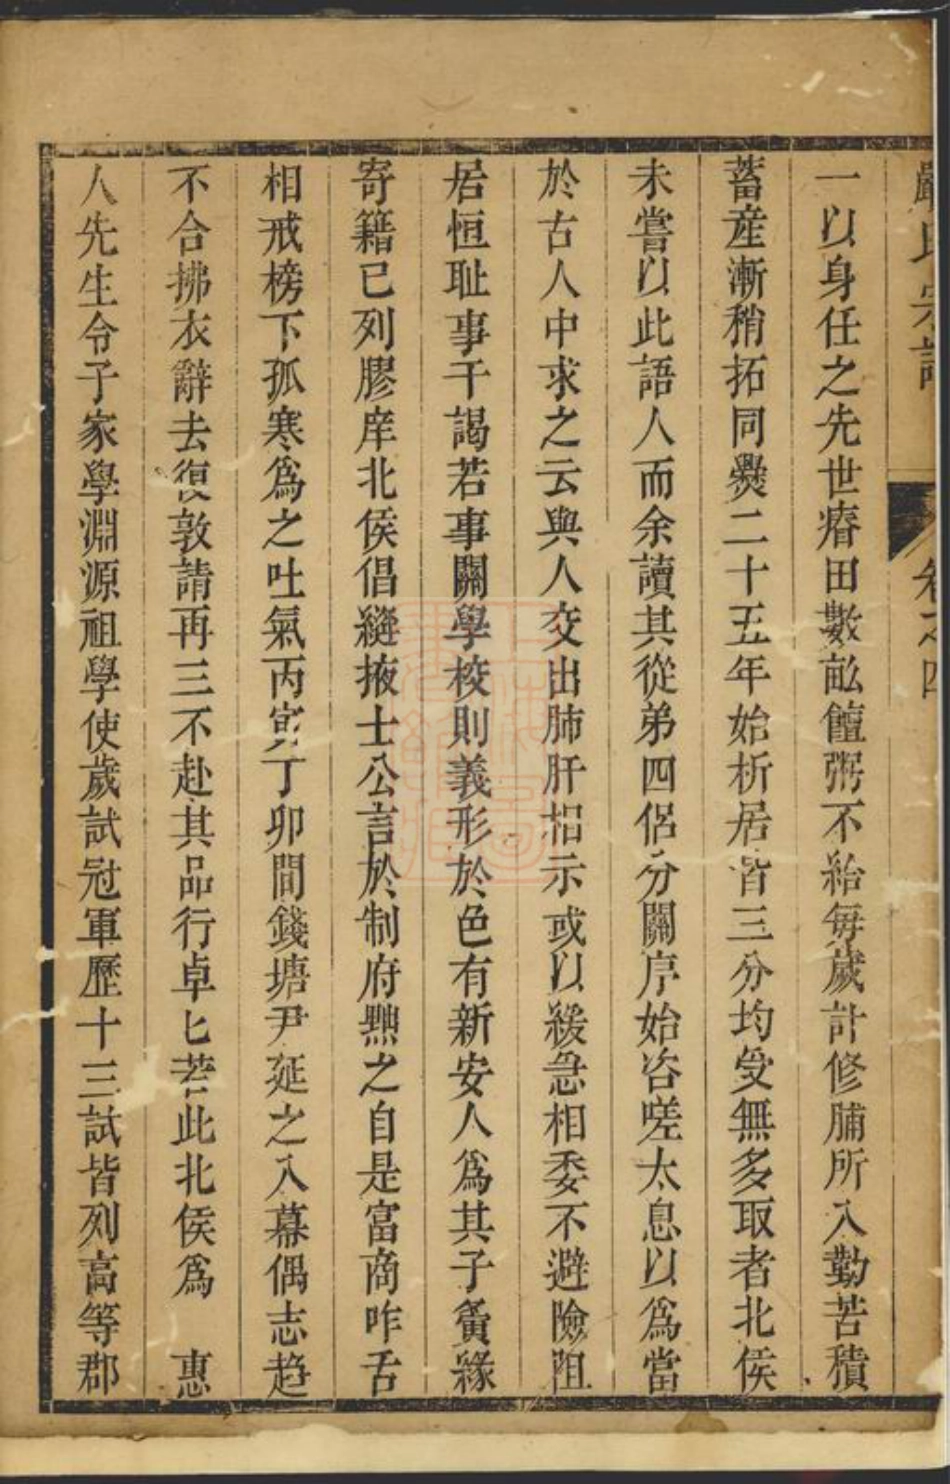 嚴氏宗譜 卷之四
一以身任之先世瘠田數畝饘粥不給每歲計修脯所入勤苦積
蓄産漸稍拓同爨二十五年始析居皆三分均受無多取者北侯
未嘗以此語人而余讀其從弟四侶分關序始咨嗟太息以爲當
於古人中求之云與人交出肺肝相示或以緩急相委不避險阻
居恒耻事干謁若事關學校則義形於色有新安人爲其子夤緣
寄籍已列膠庠北侯倡縫掖士公言於制府黜之自是富商咋舌
相戒榜下孤寒爲之吐氣丙寅丁卯間錢塘尹延之入幕偶志趋
不合拂衣辭去復敦請再三不赴其品行卓匕若此北侯爲 惠
人先生令子家學淵源祖學使歲試冠軍歷十三試皆列高等郡